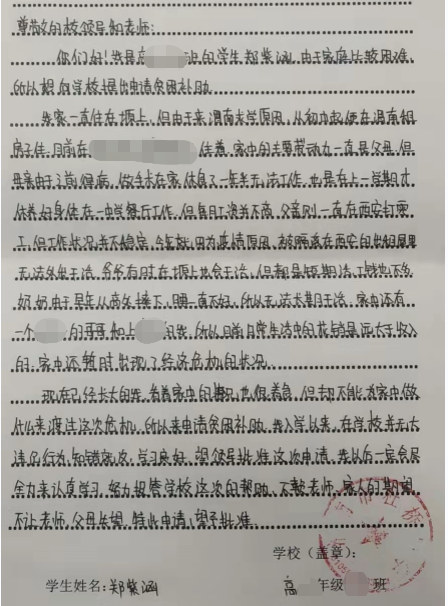 尊敬的校领导和老师:
你们好!我是 的学生郑紫涵,由于家庭比较困难,
所以想向学校提出申请贫困补助。
我家一直住在塬上,但由于来渭南求学原因,从初中起便在渭南租
房子住,目前在 住着。家中的主要劳动力一直是父母,但
母亲由于之前得病,做手术在家休息了一年半无法工作,也是在上一学期才
休养好身体在一中学餐厅工作,但每月工资并不高。父亲则一直在西安打零
工,但工作状况并不稳定,今年就因为疫情原因,被隔离在西安的出租屋里
无法外出干活。爷爷有时在塬上也会干活,但都是短期活,工钱也不多
奶奶由于早年从高处摔下,腰一直不好,所以无法长期干活。家中还有
一个 的哥哥加上 的我,所以目前日常生活中的花销是远大于收入
的,家中还暂时出现了经济危机的状况。
现在已经长大的我,看着家中的情况,也很着急,但却不能为家中做
什么来渡过这次危机,所以来申请贫困补助。我入学以来,在学校并无大
违纪行为,知错就改,学习良好,望领导批准这次申请,我以后一定会尽
全力来认真学习,努力报答学校这次的帮助,不辜老师,家人的期望
不让老师,父母失望。特此申请,望予批准。
学校(盖章):
学生姓名:郑紫涵 高 年级 班